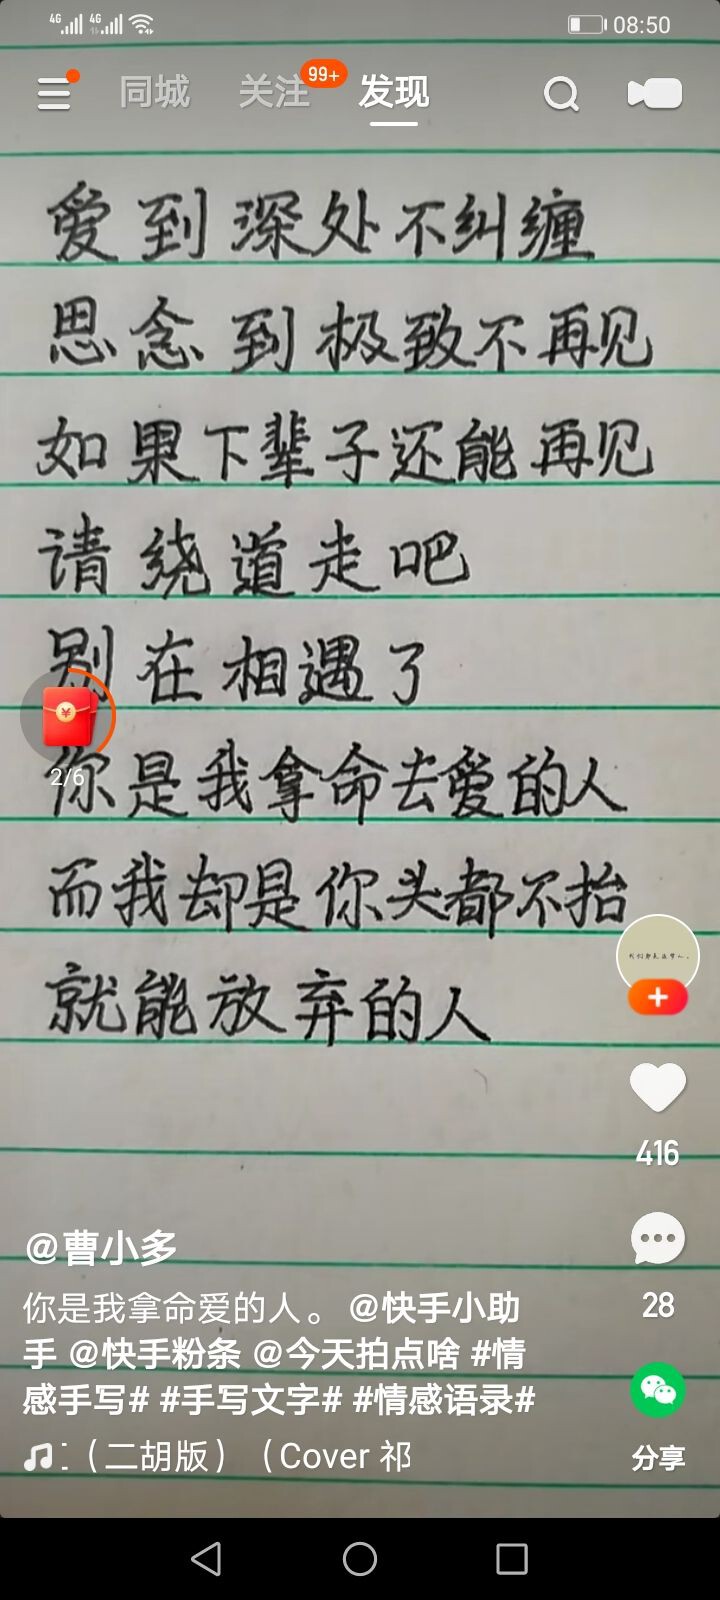 4G 4G 08:50
同城 关注 99+ 发现
爱到深处不纠缠
思念到极致不再见
如果下辈子还能再见
请绕道走吧
别在相遇了
2/6
你是我拿命去爱的人
而我却是你头都不抬
就能放弃的人
我们都是追梦人。
416
@曹小多
你是我拿命爱的人。@快手小助
28
手 @快手粉条 @今天拍点啥 #情
感手写# #手写文字# #情感语录#
（二胡版）（Cover 祁
分享